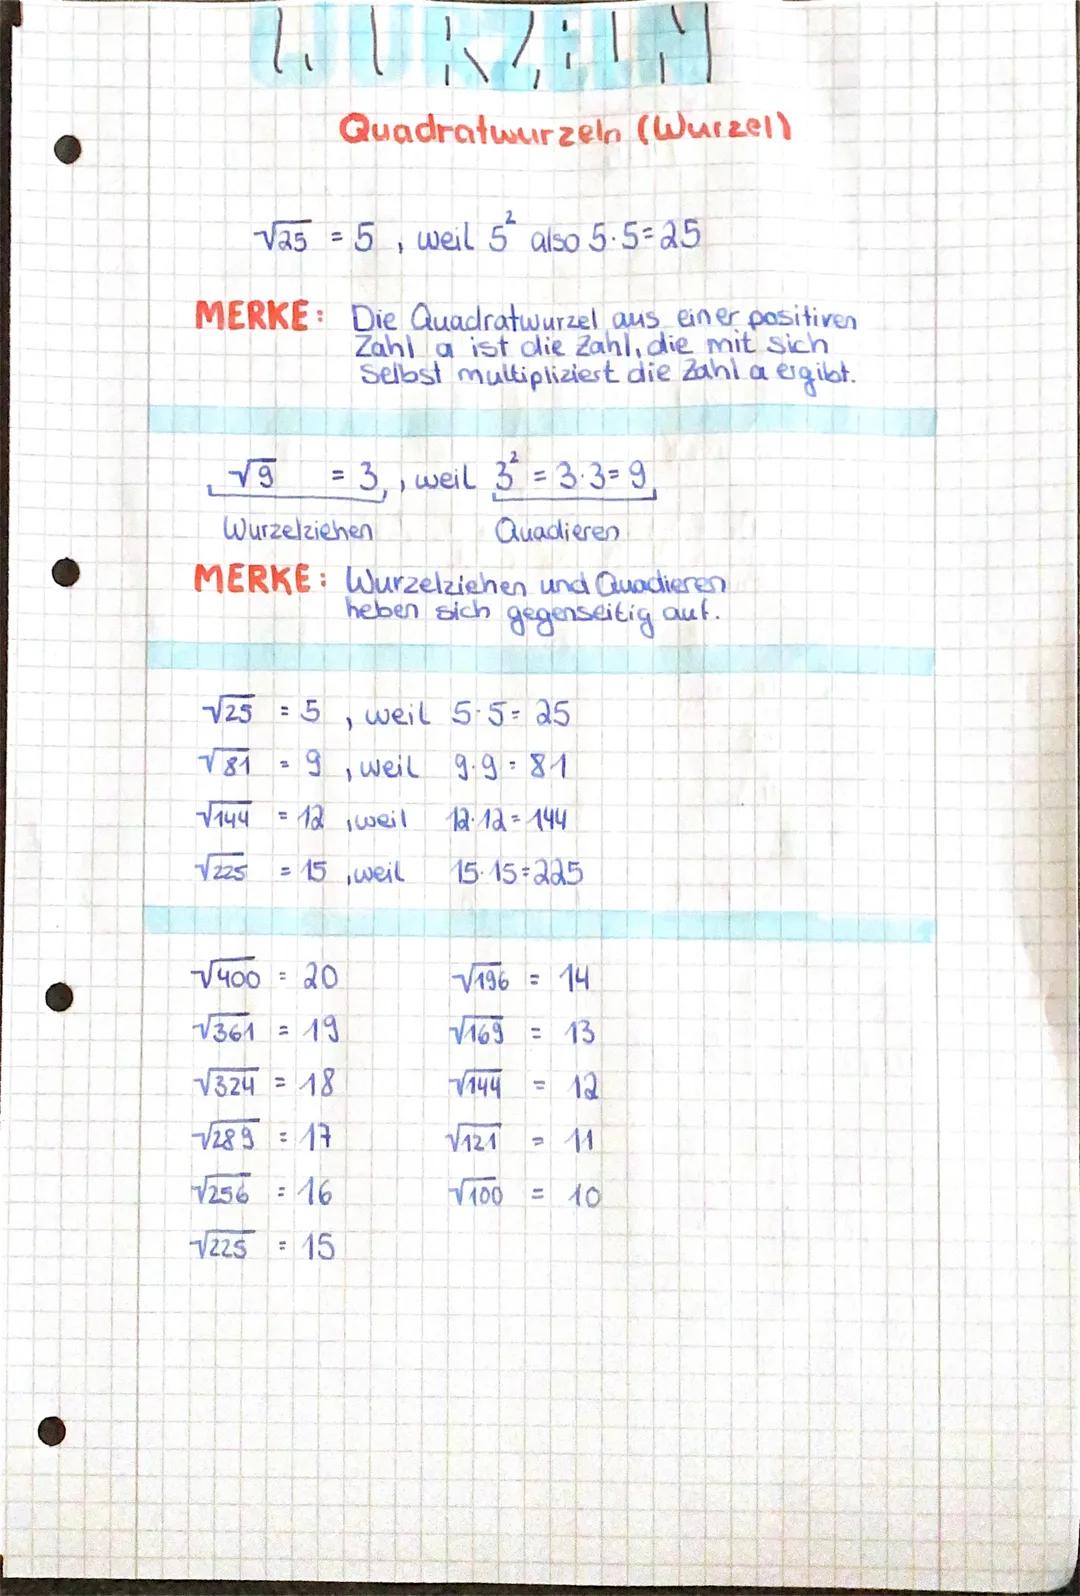 WURZELN
Quadratwurzeln (Wurzel)
√25 = 5 , weil 5² also 5·5=25
MERKE: Die Quadratwurzel aus einer positiven
Zahl a ist die Zahl, die mit sich
selbst multipliziert die Zahl a ergibt.
√9 = 3, weil 3² = 3·3=9
Wurzelziehen Quadieren
MERKE: Wurzelziehen und Quadieren
heben sich gegenseitig auf.
√25 = 5 , weil 5·5= 25
√81 = 9 , weil 9·9=81
√144 = 12 , weil 12·12=144
√225 = 15 , weil 15·15=225
√400 = 20 √196 = 14
√361 = 19 √169 = 13
√324 = 18 √144 = 12
√289 = 17 √121 = 11
√256 = 16 √100 = 10
√225 = 15